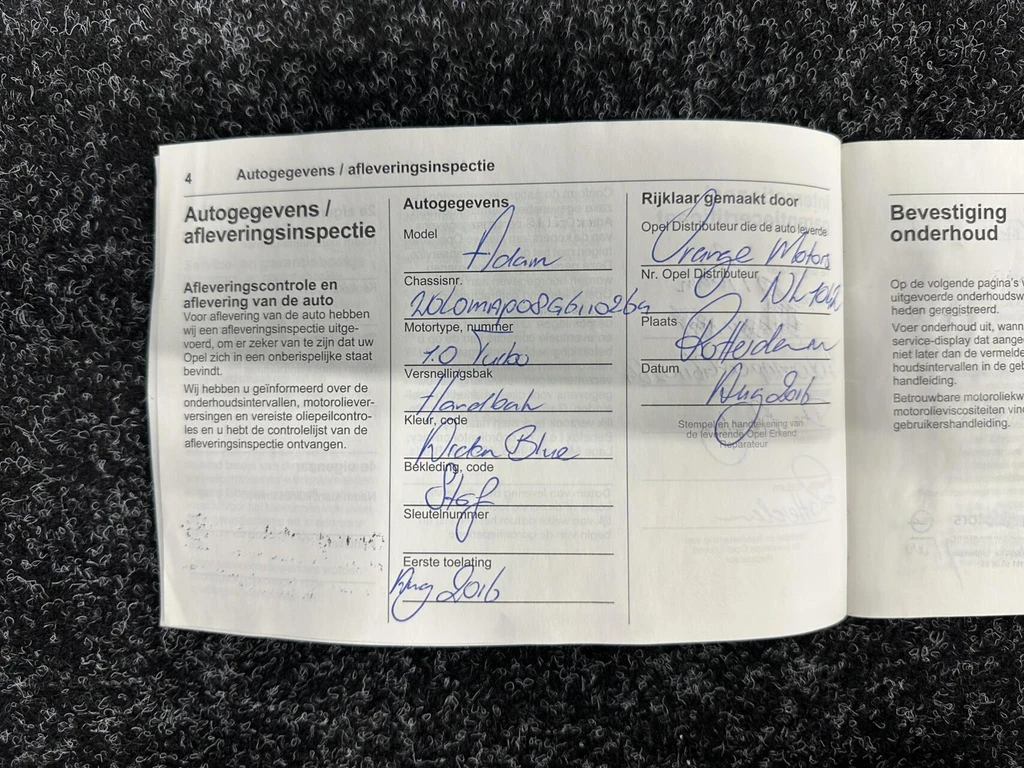 4 Autogegevens / afleveringsinspectie
Autogegevens /
afleveringsinspectie
Afleveringscontrole en
aflevering van de auto
Voor aflevering van de auto hebben
wij een afleveringsinspectie uitge-
voerd, om er zeker van te zijn dat uw
Opel zich in een onberispelijke staat
bevindt.
Wij hebben u geïnformeerd over de
onderhoudsintervallen, motoroliever-
versingen en vereiste oliepeilcontro-
les en u hebt de controlelijst van de
afleveringsinspectie ontvangen.
Autogegevens
Model
Adam
Chassisnr.
Motortype, nummer
1.0 Turbo
Versnellingsbak
Handbak
Kleur, code
Blue
Bekleding, code
Stof
Sleutelnummer
Eerste toelating
Aug 2016
Rijklaar gemaakt door
Opel Distributeur die de auto leverde
Orange Motors
Nr. Opel Distributeur
Plaats
Rotterdam
Datum
Aug 2016
Stempel en handtekening van
de leverende Opel Erkend
Reparateur
Bevestiging
onderhoud
Op de volgende pagina's
uitgevoerde
heden geregistreerd.
Voer onderhoud uit,
service-display dat
niet later dan de
houdsintervallen in de
handleiding.
Betrouwbare
motorolieviscositeiten
gebruikershandleiding.